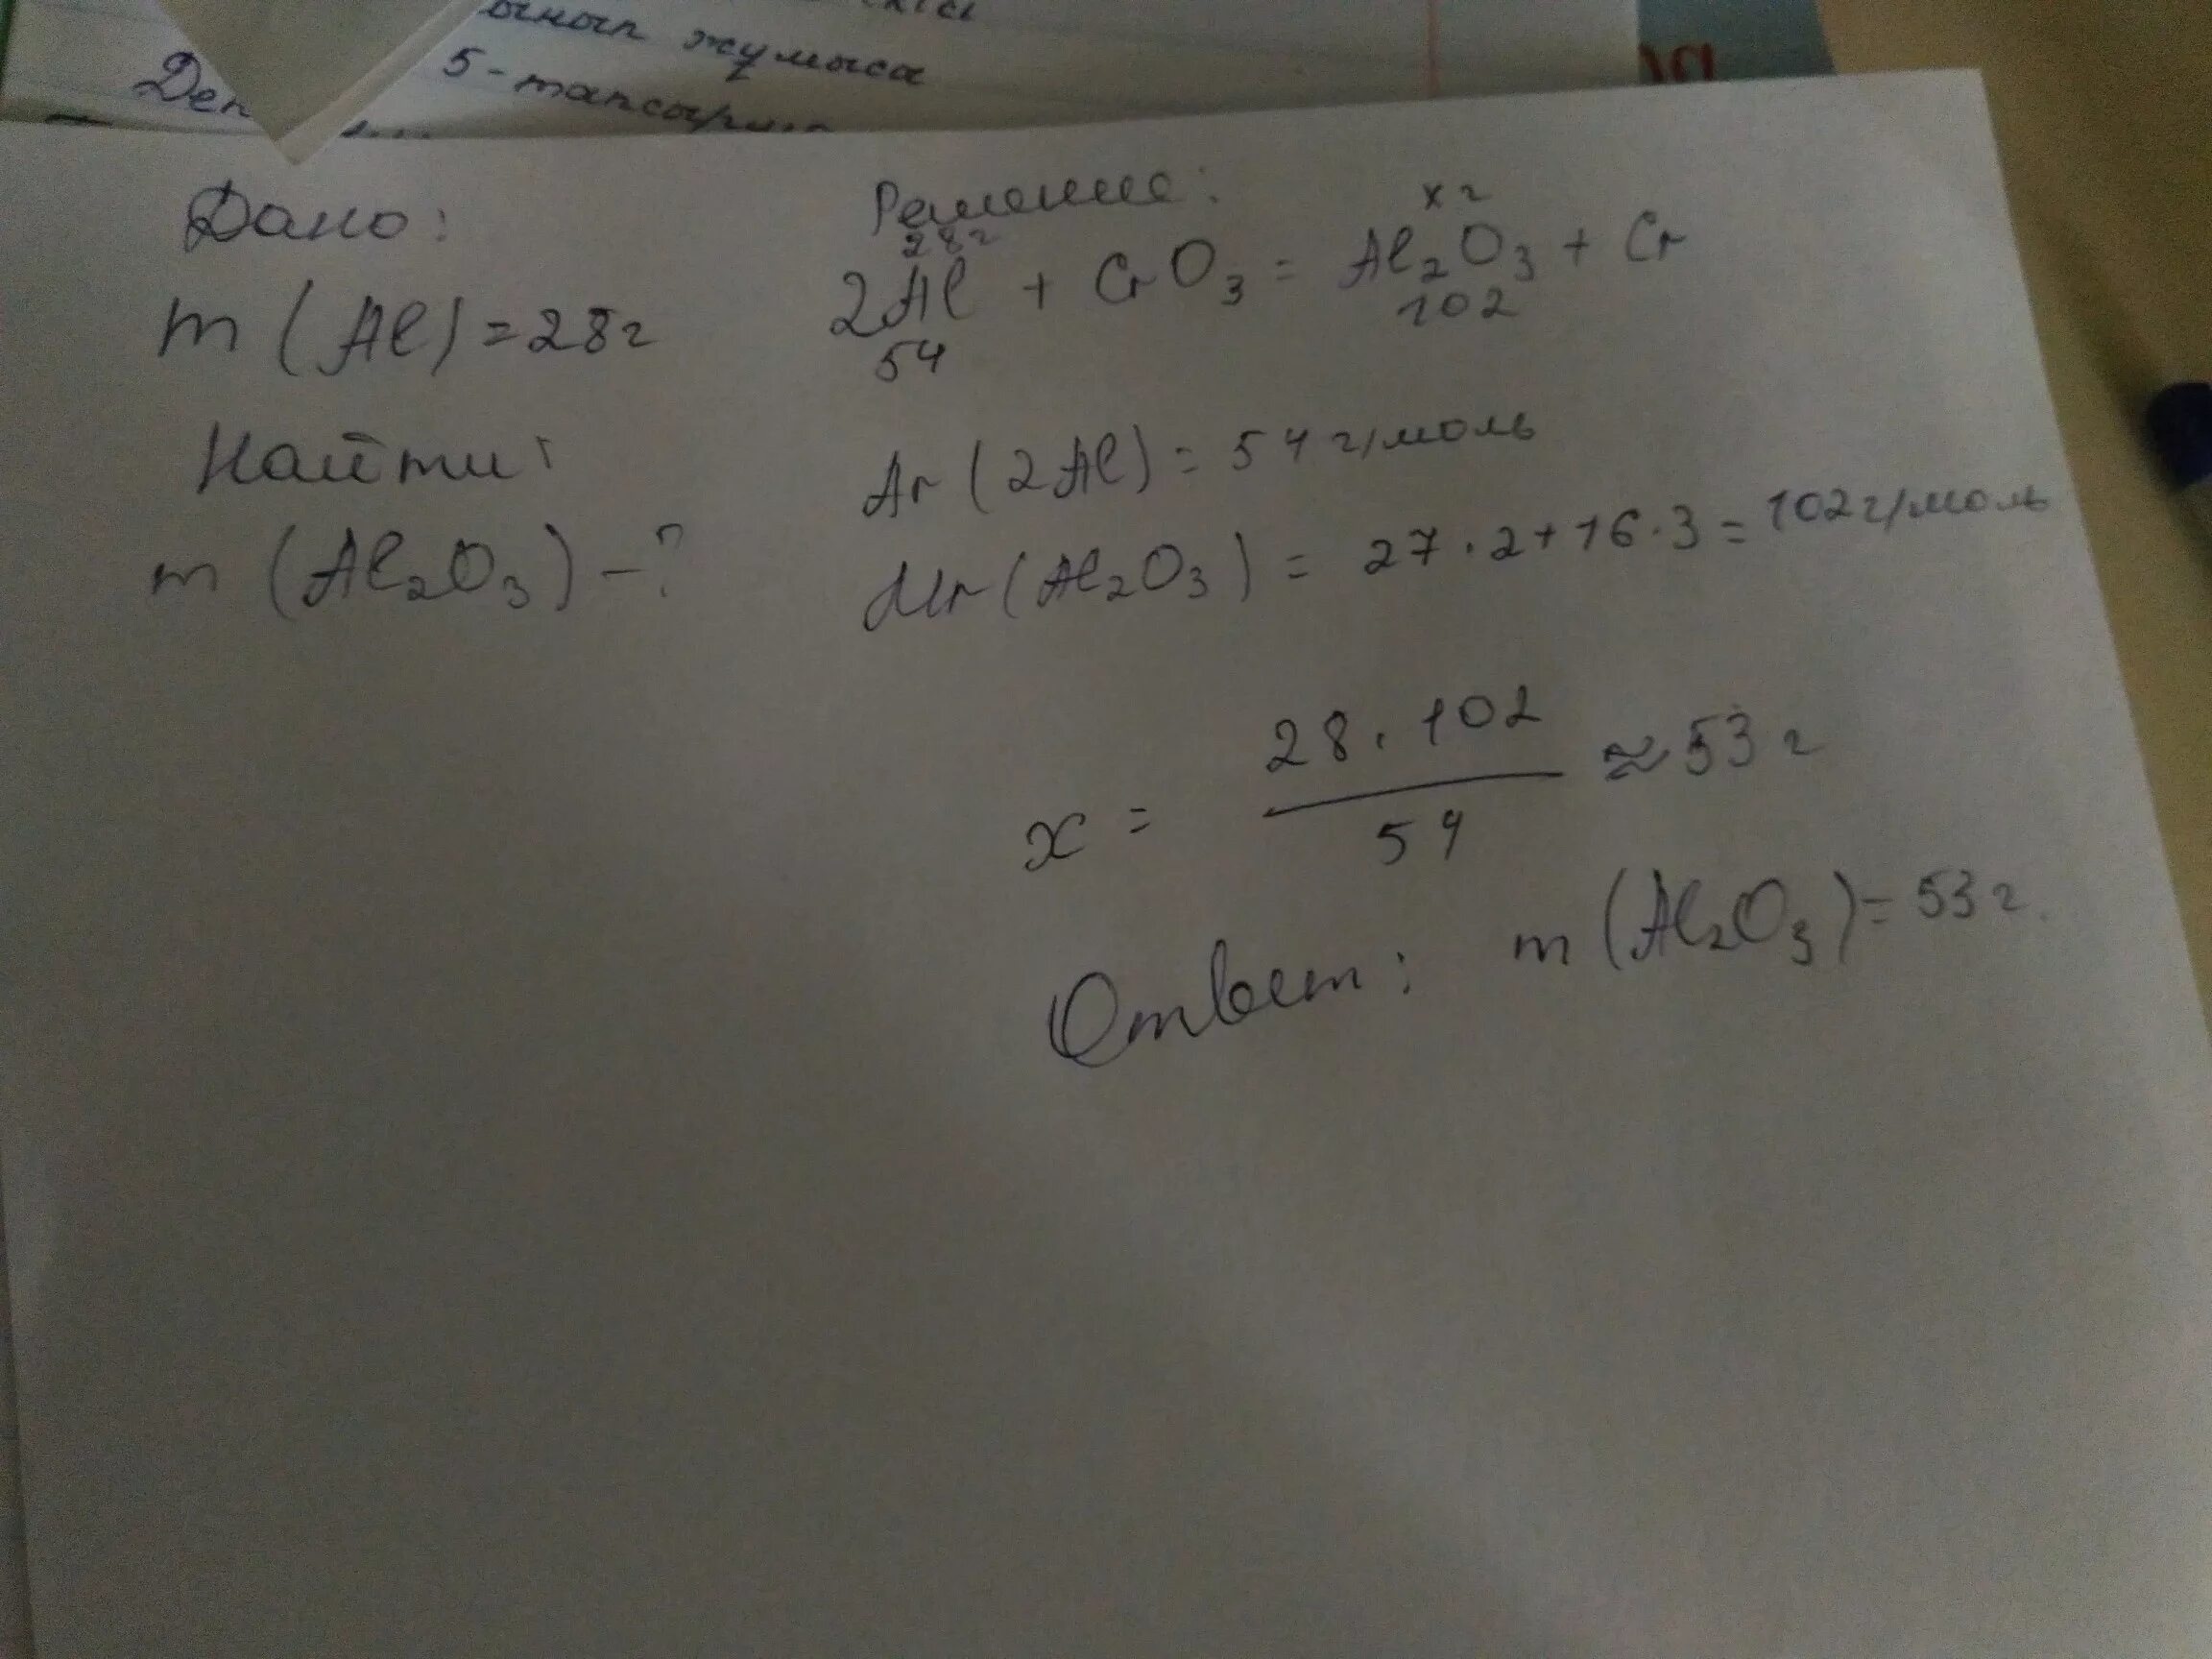 жумыса
5-тапсыр
Дано:
m (Al) = 28г
Найти:
m (Al₂O₃) - ?
Решение:
28г
x г
2Al + CrO₃ = Al₂O₃ + Cr
54
102
Ar (2Al) = 54 г/моль
Mr (Al₂O₃) = 27 · 2 + 16 · 3 = 102 г/моль
x = 28 · 102 / 54 ≈ 53 г
Ответ: m (Al₂O₃) = 53 г.